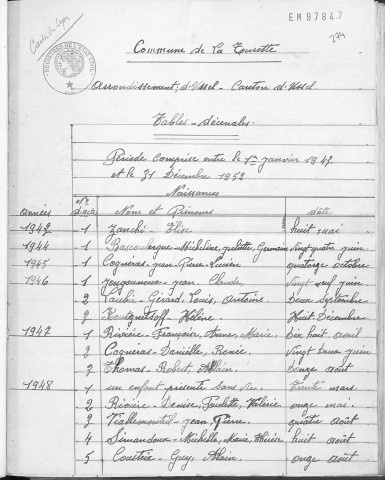 EM 9784.7
274
REGISTRES DE L'ETAT CIVIL
Commune de La Tourette
Arrondissement, d'Ussel - Canton d'Ussel.
Tables - décennales.
Période comprise entre le 1er janvier 1942
et le 31 Décembre 1952
Naissances
années n° d'acte Nom et Prénoms date
1942 1 Zanchi - Elise huit mai
1944 1 Bascoulergue - Micheline, juliette, Germaine vingt quatre juin
1945 1 Cogneras - jean - Pierre - Lucien quatorze octobre
1946 1 jean, Claude, vingt neuf juin
2 Laubie - Gérard, Louis, Antoine. Deux Septembre
3 Hélène Huit Décembre
1947 1 Rivière - Françoise, Anne, Marie. Dix huit août
2 Cogneras - Danielle, Renée vingt deux juin
3 Thomas - Robert, Alain. Douze août
1948 1 un enfant présenté sans vie. Trente mars.
2 Rivière - Denise, Paulette, Valérie onze mai
3 Viallemonteil - jean, Pierre. quatre août
4 Simandoux - Michelle, Marie, Thérèse huit août
5 Guy, Alain. onze août